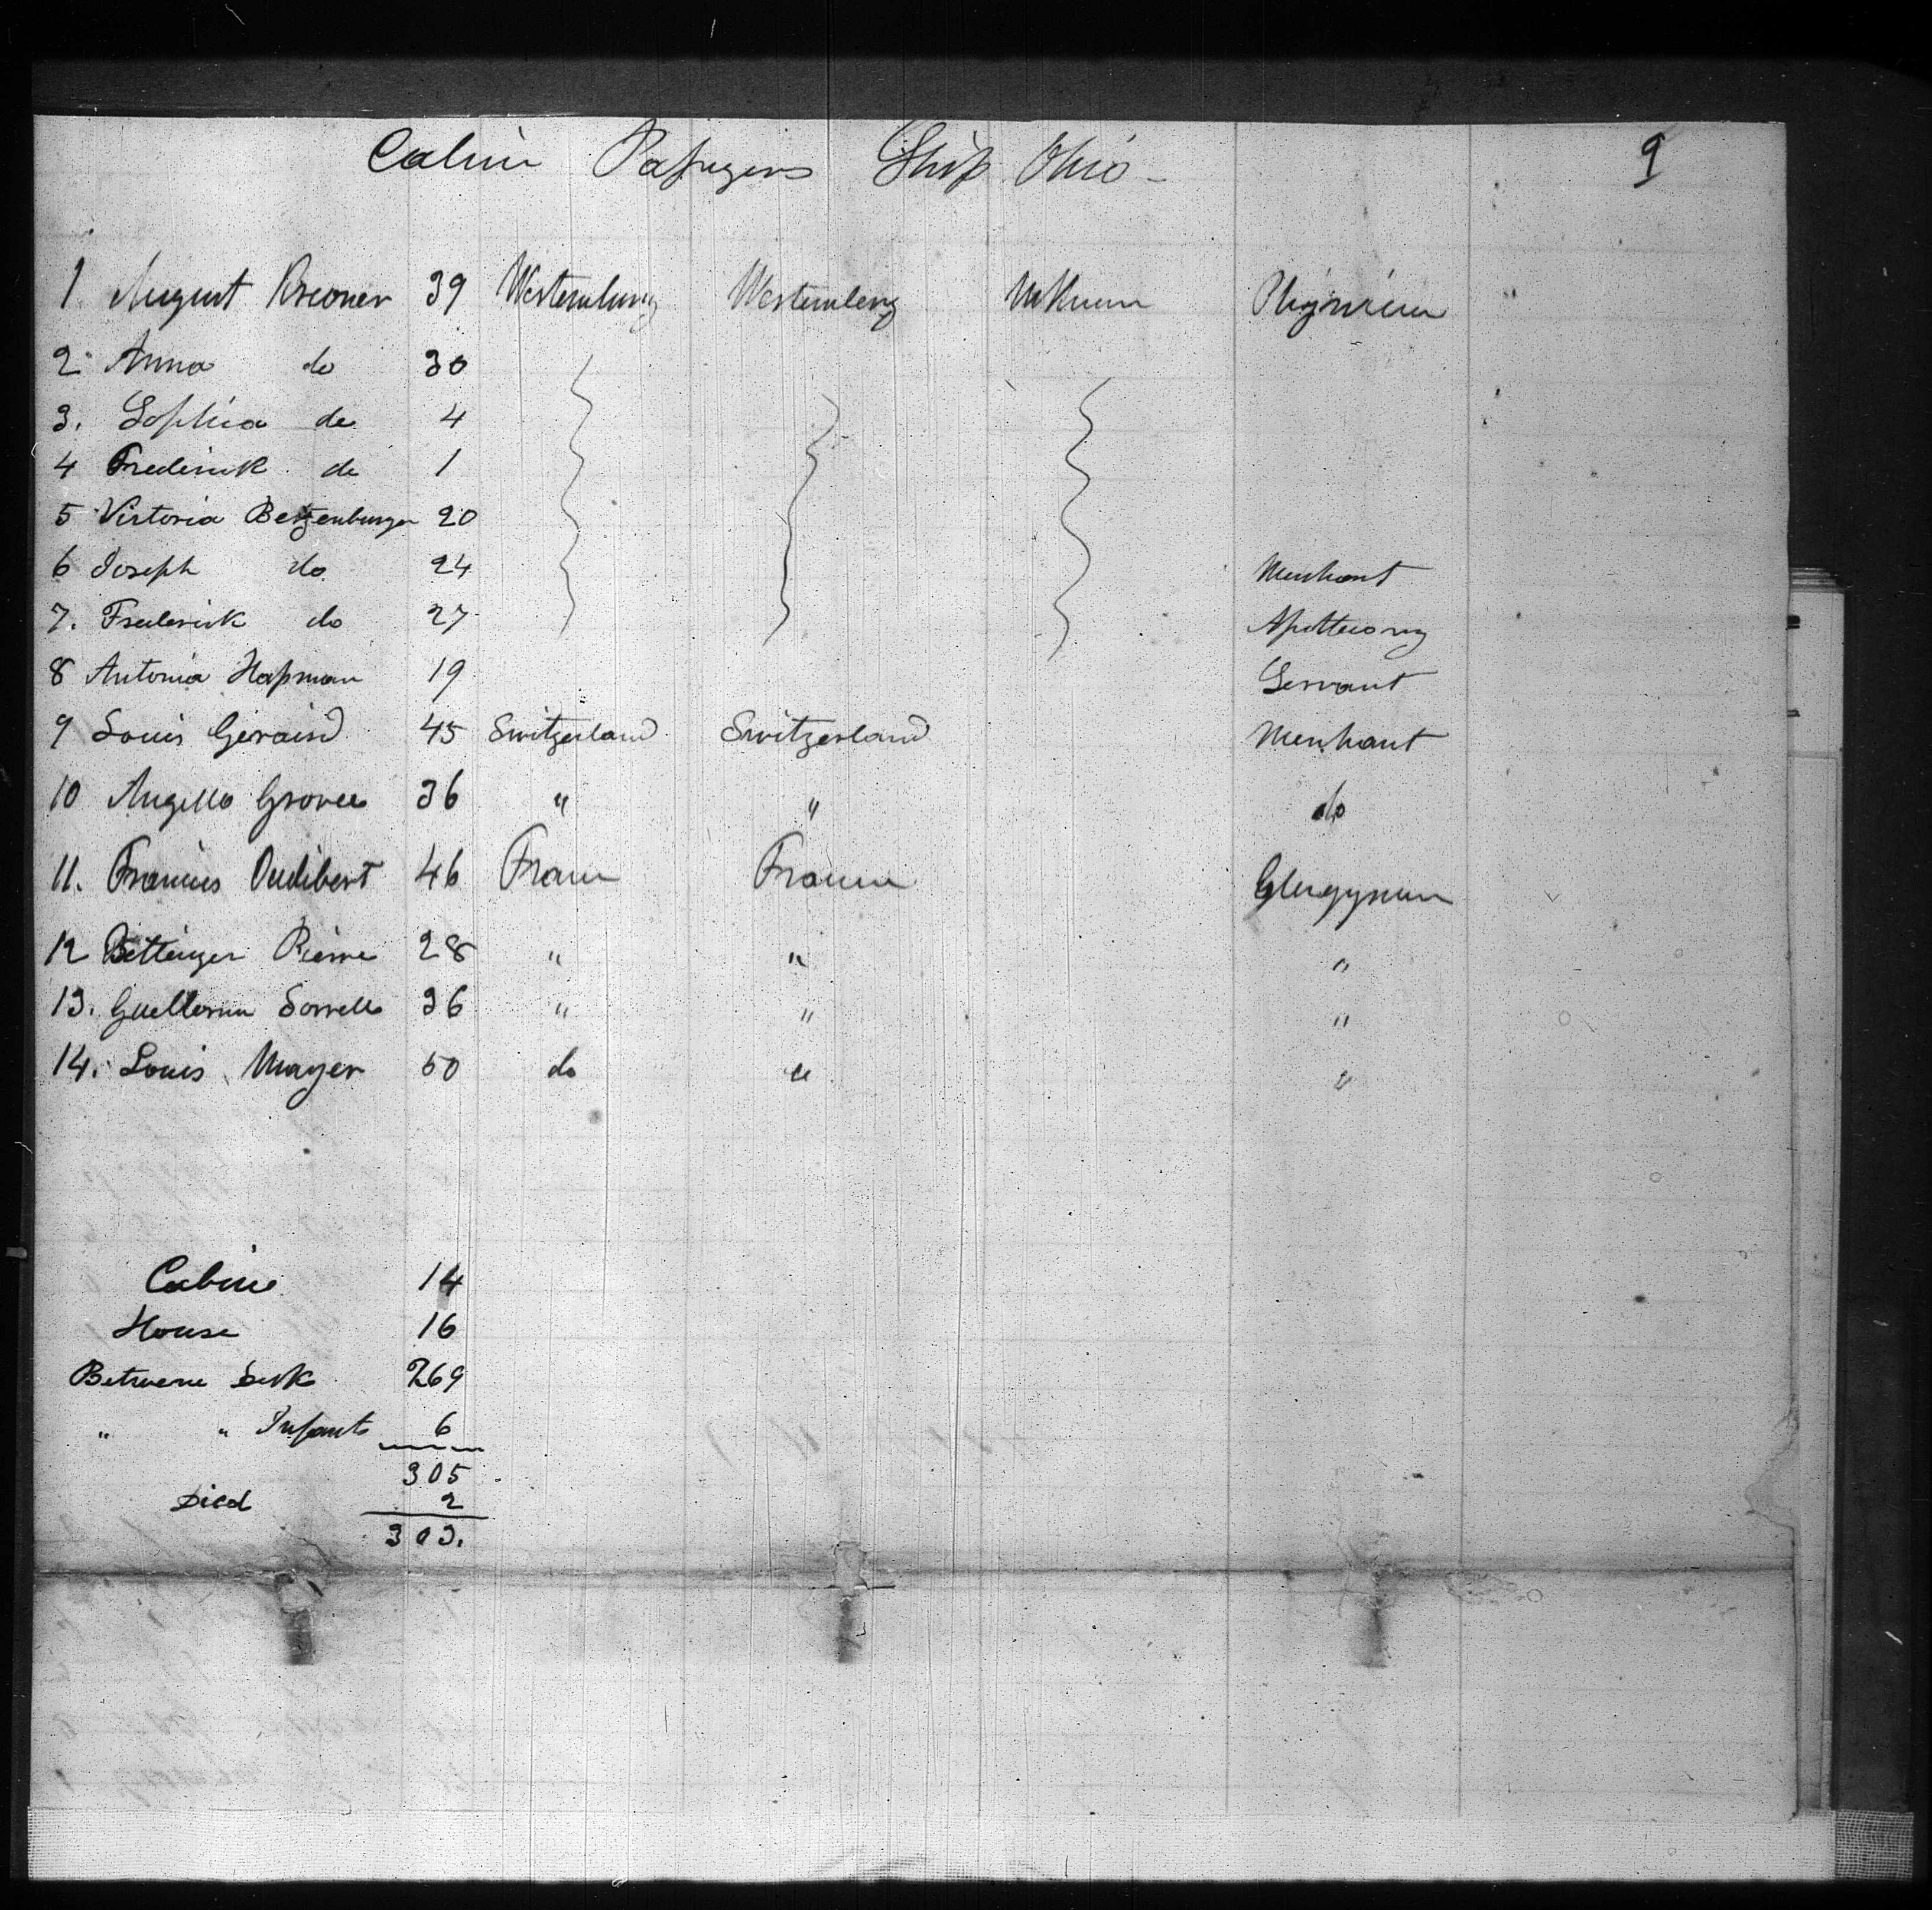 Cabin Passengers Ship Ohio - 9
1 August Breoner 39 Wertemburg Wertemberg Unknown Physician
2 Anna do 30
3. Sophia do 4
4 Frederick do 1
5 Victoria Betzenburger 20
6 Joseph do 24 Merchant
7. Frederick do 27 Apottecary
8 Antonia Hassman 19 Servant
9 Louis Geraird 45 Switzerland Switzerland Merchant
10 Angello 36 " " do
11. Francies Oudibert 46 France France Clergyman
12 Bettinger Pierre 28 " " "
13. Sorrells 36 " " "
14. Louis Mayer 50 do " "
Cabine 14
House 16
Betweene Deck 269
" " Infants 6
305
Died 2
303.